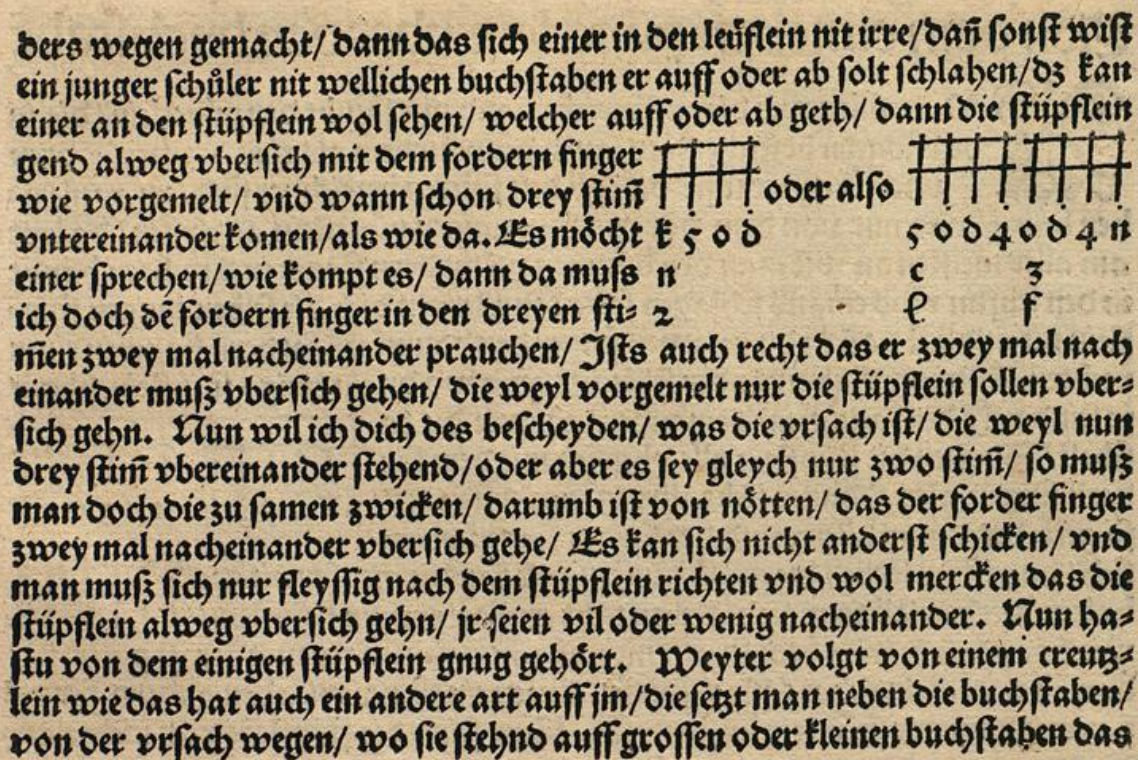 ders wegen gemacht/ dann das sich einer in den leüflein nit irre/dañ sonst wist
ein junger schůler nit wellichen buchstaben er auff oder ab solt schlahen/dz kan
einer an den stüpflein wol sehen/ welcher auff oder ab geth/ dann die stüpflein
gend alweg vbersich mit dem fordern finger
wie vorgemelt/ vnd wann schon drey stim̃ oder also
vntereinander komen/als wie da. Es möcht k 5 o d 5 o d 4 o d 4 n
einer sprechen/wie kompt es/ dann da muss n c 3
ich doch dẽ fordern finger in den dreyen sti= 2 ꝭ f
m̃en zwey mal nacheinander prauchen/ Ists auch recht das er zwey mal nach
einander muß vbersich gehen/ die weyl vorgemelt nur die stüpflein sollen vber=
sich gehn. Nun wil ich dich des bescheyden/ was die vrsach ist/ die weyl nun
drey stim̃ vbereinander stehend/oder aber es sey gleych nur zwo stim̃/ so muß
man doch die zu samen zwicken/ darumb ist von nötten/ das der forder finger
zwey mal nacheinander vbersich gehe/ Es kan sich nicht anderst schicken/ vnd
man muß sich nur fleyssig nach dem stüpflein richten vnd wol mercken das die
stüpflein alweg vbersich gehn/ jr seien vil oder wenig nacheinander. Nun ha=
stu von dem einigen stüpflein gnug gehört. Weyter volgt von einem creutz=
lein wie das hat auch ein andere art auff jm/die setzt man neben die buchstaben/
von der vrsach wegen/ wo sie stehnd auff grossen oder kleinen buchstaben das